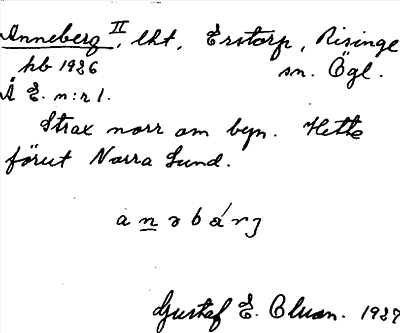 Anneberg II, lht, Erstorp, Risinge
hb 1926 sn. Ögl.
Å E. n:r 1.
Strax norr om byn. Hette
förut Norra Lund.
a n ə b á r j
Gustaf E. 1927